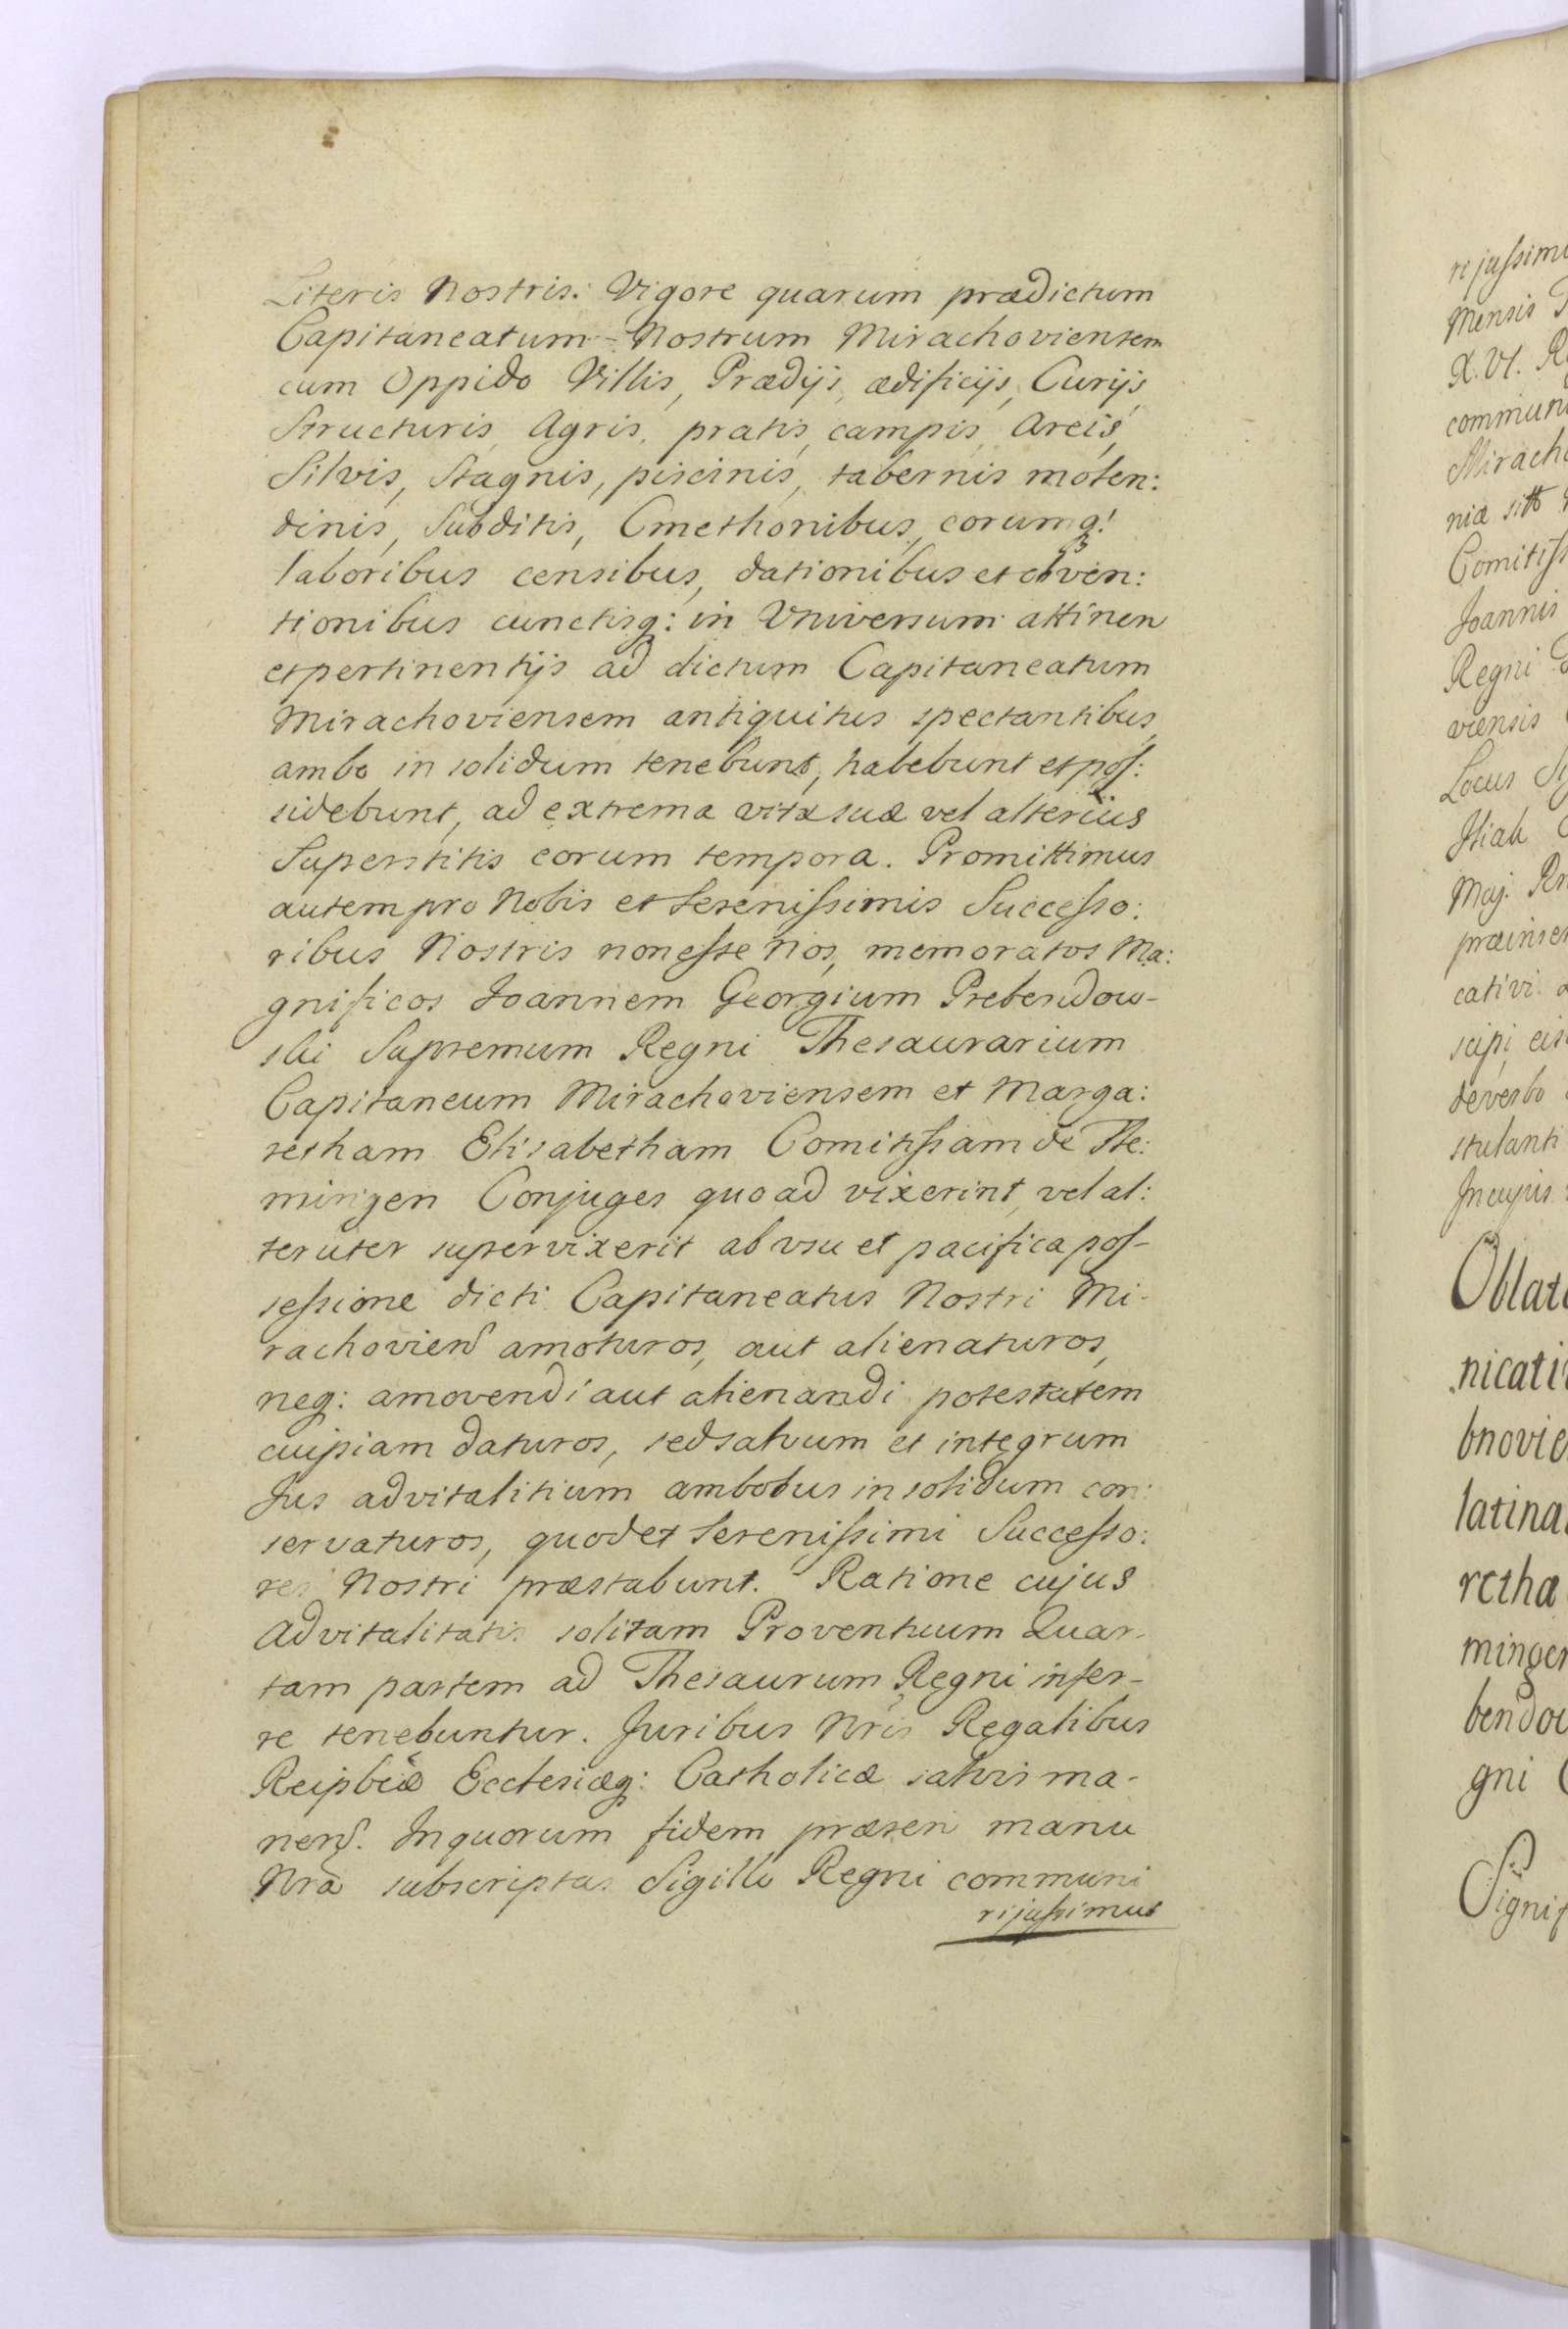 Literis Nostris: Vigore quarum prædictum
Capitaneatum Nostrum Mirachoviensem
cum Oppido Villis, Prædijs, ædificijs, Curijs,
Structuris, Agris, pratis, campis, Areis,
Silvis, Stagnis, piscinis, tabernis molen:
dinis, Subditis, Cmethonibus, eorumq:
laboribus censibus, dationibus et obven:
tionibus cunctisq: in Universum attinen
et pertinentijs ad dictum Capitaneatum
Mirachoviensem antiquitus spectantibus,
ambo in solidum tenebunt, habebunt et pos:
sidebunt, ad extrema vitæ suæ vel alterius
Superstitis eorum tempora. Promittimus
autem pro Nobis et Serenissimis Successo:
ribus Nostris non esse Nos, memoratos Ma:
gnificos Joannem Georgium Prebendow-
ski Supremum Regni Thesaurarium
Capitaneum Mirachoviensem et Marga:
retham Elisabetham Comitissam de Fle:
mingen Conjuges quoad vixerint, vel al:
teruter supervixerit ab usu et pacifica pos-
sessione dicti Capitaneatus Nostri Mi-
rachovien amoturos, aut alienaturos,
neq: amovendi aut alienandi potestatem
cuipiam daturos, sed salvum et integrum
Jus advitalitium ambobus in solidum con:
servaturos, quod et Serenissimi Successo:
res Nostri præstabunt. Ratione cujus
Advitalitatis solitam Proventuum Quar-
tam partem ad Thesaurum Regni infer-
re tenebuntur. Juribus Nris Regalibus
Reipbcæ Ecclesiæq: Catholicæ salvis ma-
nen. In quorum fidem præsen manu
Nra subscriptas Sigillo Regni communi
ri jussimus
ri jussim
Mensis
D. VI. R
communi
Mirach
niæ sitt
Comitiss
Joannis
Regni
viensis
Locus
Maj.
præinser
cativi
scipi eis
de verbo
stulanti
In cujus
Oblat
nicati
bnovie
latina
retha
minger
bendou
gni
Signif